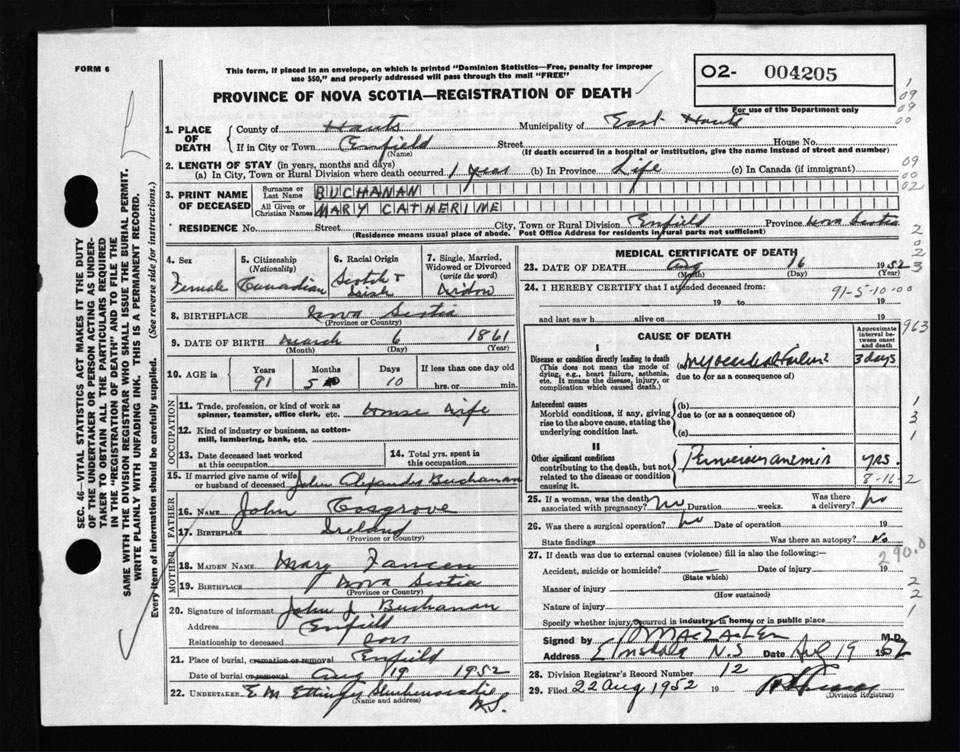 FORM 6
This form, if placed in an envelope, on which is printed "Dominion Statistics—Free, penalty for improper
use $50," and properly addressed will pass through the mail "FREE"
O2- 004205
For use of the Department only
PROVINCE OF NOVA SCOTIA—REGISTRATION OF DEATH
1. PLACE OF DEATH
County of Hants Municipality of East Hants
If in City or Town Enfield Street House No.
(Name) (If death occurred in a hospital or institution, give the name instead of street and number)
2. LENGTH OF STAY (in years, months and days)
(a) In City, Town or Rural Division where death occurred 1 year (b) In Province Life (c) In Canada (if immigrant)
3. PRINT NAME OF DECEASED
Surname or Last Name BUCHANAN
All Given or Christian Names MARY CATHERINE
RESIDENCE No. Street City, Town or Rural Division Enfield Province Nova Scotia
(Residence means usual place of abode. Post Office Address for residents in rural parts not sufficient)
4. Sex Female
5. Citizenship (Nationality) Canadian
6. Racial Origin Scotch + Irish
7. Single, Married, Widowed or Divorced (write the word) Widow
8. BIRTHPLACE Nova Scotia
(Province or Country)
9. DATE OF BIRTH March 6 1861
(Month) (Day) (Year)
10. AGE in Years 91 Months 5 Days 10 If less than one day old hrs. or min.
OCCUPATION
11. Trade, profession, or kind of work as spinner, teamster, office clerk, etc. House Wife
12. Kind of industry or business, as cotton-mill, lumbering, bank, etc.
13. Date deceased last worked at this occupation
14. Total yrs. spent in this occupation
15. If married give name of wife or husband of deceased John Alexander Buchanan
FATHER
16. NAME John Cosgrove
17. BIRTHPLACE Ireland
(Province or Country)
MOTHER
18. MAIDEN NAME Mary
19. BIRTHPLACE Nova Scotia
(Province or Country)
20. Signature of informant John J Buchanan
Address Enfield
Relationship to deceased son
21. Place of burial, cremation or removal Enfield
Date of burial or removal Aug 19 1952
22. UNDERTAKER E M Ettinger Shubenacadie
(Name and address) N.S.
MEDICAL CERTIFICATE OF DEATH
23. DATE OF DEATH Aug 16 1952
(Month) (Day) (Year)
24. I HEREBY CERTIFY that I attended deceased from:
91-5-10-00
19 to 19
and last saw h alive on 19
CAUSE OF DEATH
Approximate interval between onset and death
I
Disease or condition directly leading to death
(This does not mean the mode of dying, e.g., heart failure, asthenia, etc. It means the disease, injury, or complication which caused death.)
(a) Myocardial failure 3 days
due to (or as a consequence of)
Antecedent causes
Morbid conditions, if any, giving rise to the above cause, stating the underlying condition last.
(b)
due to (or as a consequence of)
(c)
II
Other significant conditions contributing to the death, but not related to the disease or condition causing it.
Pernicious anemia yrs.
8-16-2
25. If a woman, was the death associated with pregnancy? No Duration weeks. Was there a delivery? No
26. Was there a surgical operation? No Date of operation 19
State findings Was there an autopsy? No
27. If death was due to external causes (violence) fill in also the following:—
290.0
Accident, suicide or homicide? Date of injury 19
(State which)
Manner of injury
(How sustained)
Nature of injury
Specify whether injury occurred in industry, in home, or in public place
Signed by M.D.
Address Elmsdale N.S Date Aug 19 1952
28. Division Registrar's Record Number 12
29. Filed 22 Aug 1952 19
(Division Registrar)
SEC. 46—VITAL STATISTICS ACT MAKES IT THE DUTY
OF THE UNDERTAKER OR PERSON ACTING AS UNDER-
TAKER TO OBTAIN ALL THE PARTICULARS REQUIRED
IN THE "REGISTRATION OF DEATH" AND TO FILE THE
SAME WITH THE DIVISION REGISTRAR WHO SHALL ISSUE THE BURIAL PERMIT.
WRITE PLAINLY WITH UNFADING INK. THIS IS A PERMANENT RECORD.
Every item of information should be carefully supplied. (See reverse side for instructions.)